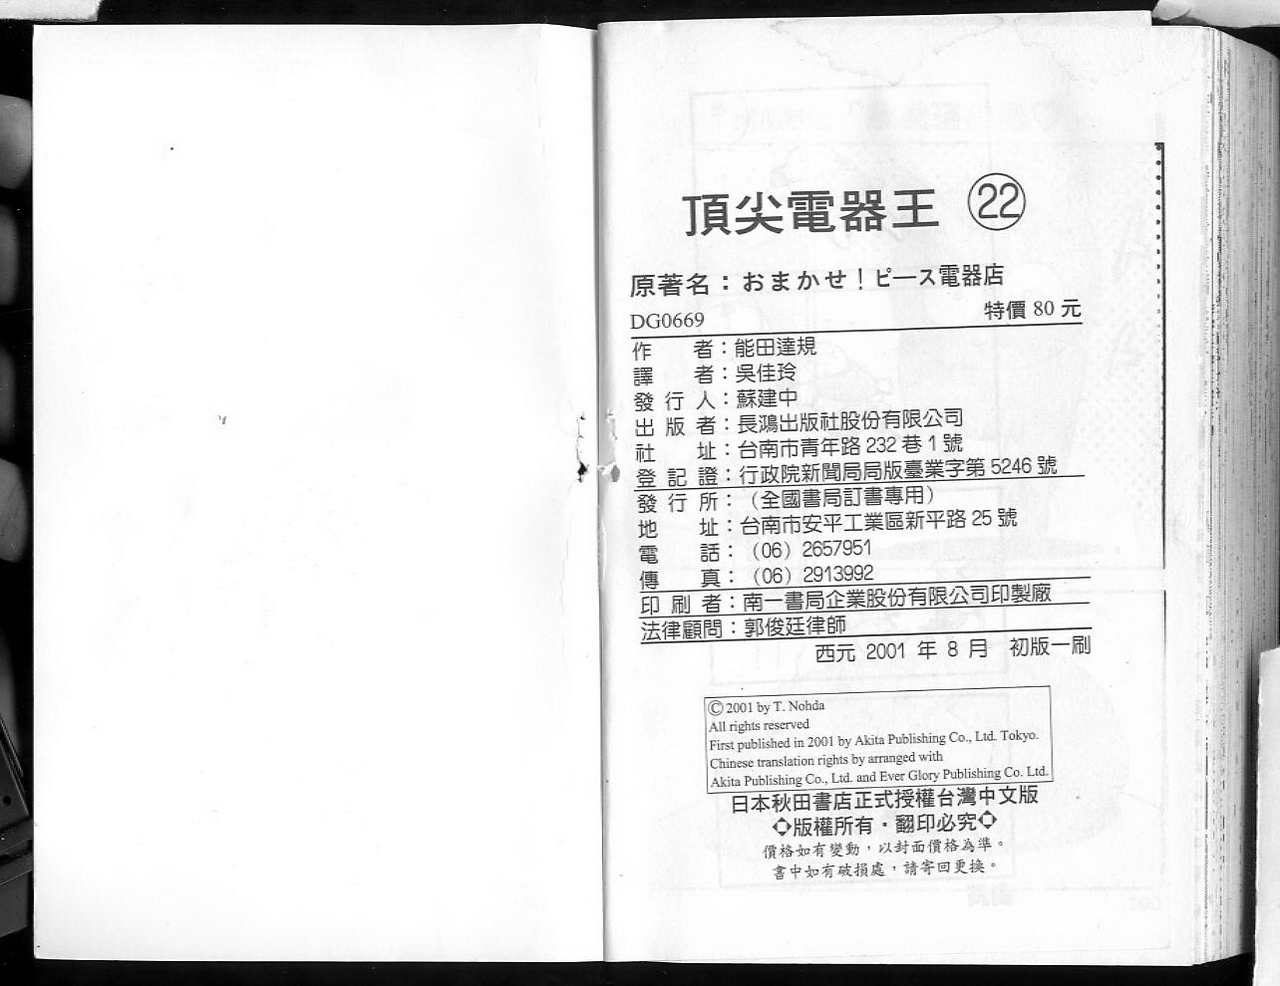 頂尖電器王 ㉒
原著名：おまかせ！ピース電器店
DG0669 特價 80 元
作者：能田達規
譯者：吳佳玲
發行人：蘇建中
出版者：長鴻出版社股份有限公司
社址：台南市青年路 232 巷 1 號
登記證：行政院新聞局局版臺業字第 5246 號
發行所：（全國書局訂書專用）
地址：台南市安平工業區新平路 25 號
電話：（06）2657951
傳真：（06）2913992
印刷者：南一書局企業股份有限公司印製廠
法律顧問：郭俊廷律師
西元 2001 年 8 月 初版一刷
© 2001 by T. Nohda
All rights reserved
First published in 2001 by Akita Publishing Co., Ltd. Tokyo.
Chinese translation rights by arranged with
Akita Publishing Co., Ltd. and Ever Glory Publishing Co. Ltd.
日本秋田書店正式授權台灣中文版
◇版權所有・翻印必究◇
價格如有變動，以封面價格為準。
書中如有破損處，請寄回更換。